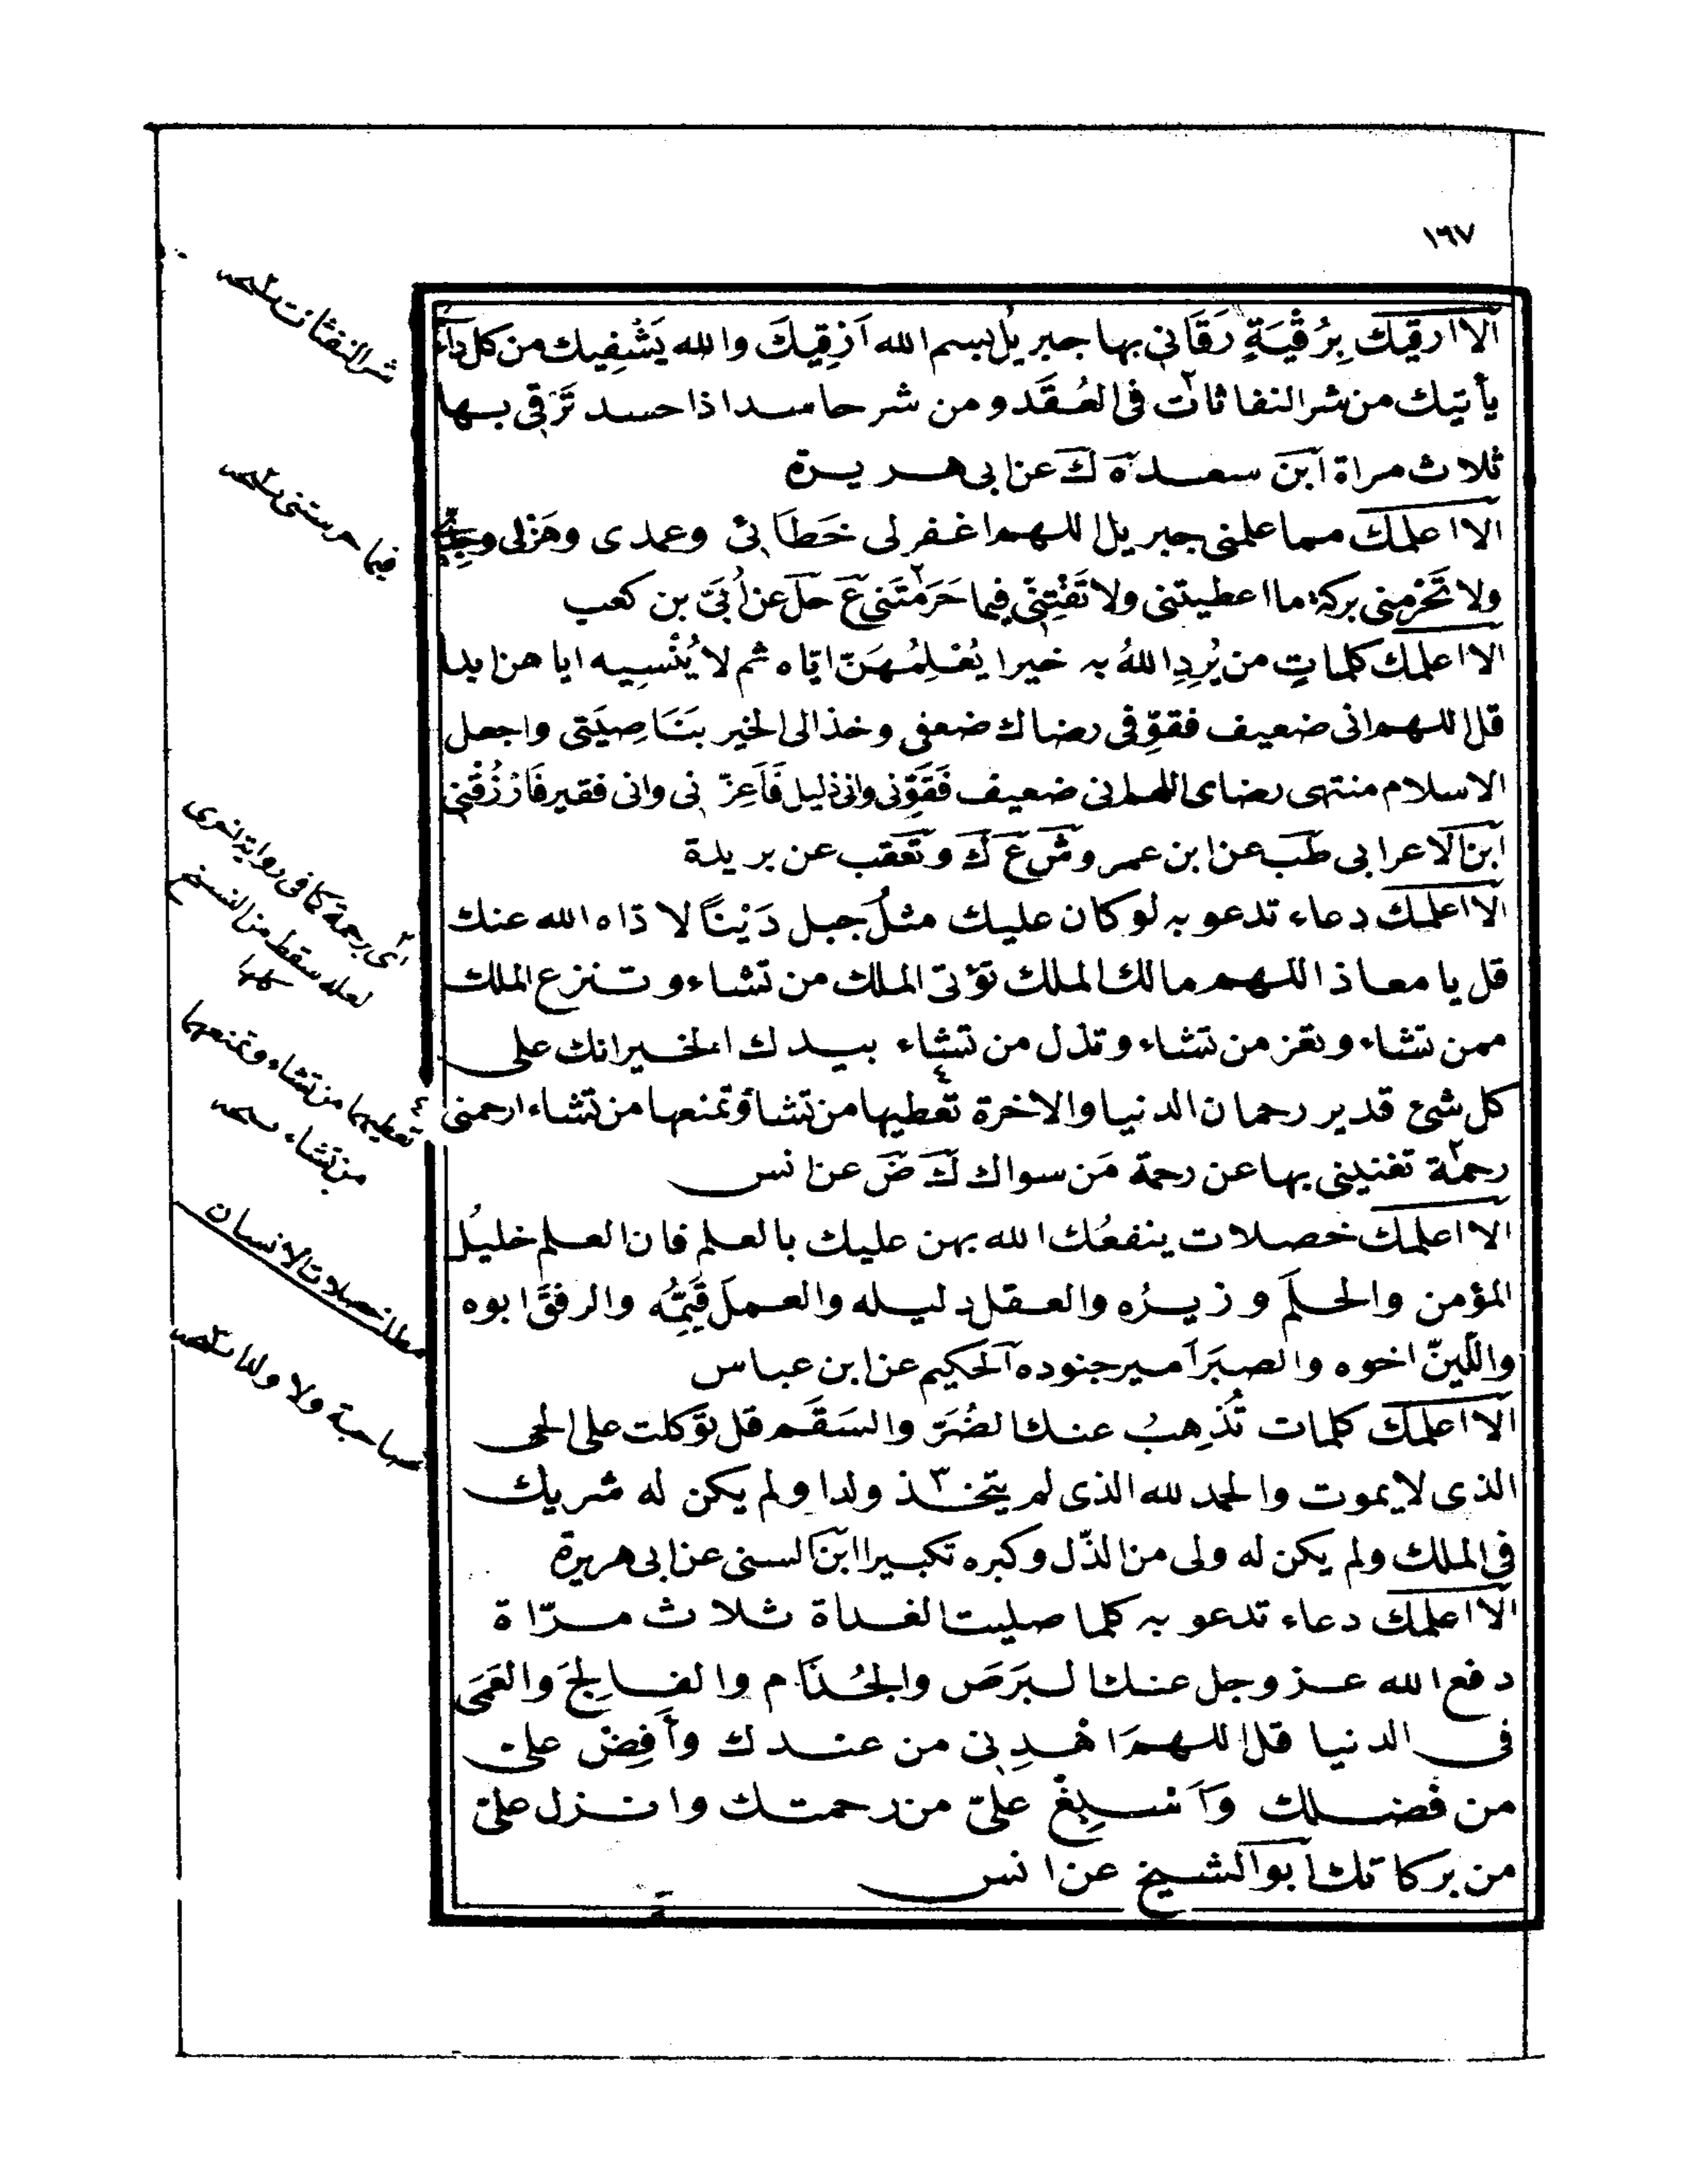 ١٦٧
الا ارقيك بِرُقْيَةٍ رَقَاني بها جبريلُ بسم الله اَرْقِيكَ والله يَشْفِيك من كل داء
يأتيك من شر النفاثات فى العُقَد ومن شر حاسد اذا حسد تَرْقى بها
ثلاث مراة ابن سعد ه ك عن ابى هريرة
الا اعلمك مما علمنى جبريل اللهم اغفر لى خَطَائي وعمدى وهَزْلى وجِدِّى
ولا تَحْرِمنى بركة ما اعطيتنى ولا تَفْتِنّى فيما حَرَمْتَنى ع حل عن اُبَىّ بن كعب
الا اعلمك كلماتٍ من يُرِدِ اللهُ به خيرا يُعْلِمُهَنّ ايّاه ثم لا يُنْسِيه اياهن ابدا
قل اللهم انى ضعيف فقوِّ فى رضاك ضعفى وخذ الى الخير بنَاصِيَتى واجعل
الاسلام منتهى رضاى اللهم انى ضعيف فَقَوِّنى وانى ذليل فَاَعِزّنى وانى فقير فَارْزُقْنى
ابن الاعرابى طب عن ابن عمرو ش ع ك وتعقب عن بريدة
الا اعلمك دعاء تدعو به لو كان عليك مثلُ جبل دَيْنًا لاداه الله عنك
قل يا معاذ اللهم مالك الملك تؤتى الملك من تشاء وتنزع الملك
ممن تشاء وتعز من تشاء وتذل من تشاء بيدك الخير انك على
كل شئ قدير رحمان الدنيا والاخرة تعطيها من تشاؤ وتمنعها من تشاء ارحمنى
رحمة تغنينى بها عن رحمة مَن سواك ك ض عن انس
الا اعلمك خصلات ينفعُك الله بهن عليك بالعلم فان العلم خليلُ
المؤمن والحلم وزيرُه والعقل دليله والعمل قَيّمُه والرفق ابوه
واللّين اخوه والصبر امير جنوده الحكيم عن ابن عباس
الا اعلمك كلمات تُذهِبُ عنك الضُرّ والسَقَم قل توكلت على الحى
الذى لا يموت والحمد لله الذى لم يتخذ ولدا ولم يكن له شريك
فى الملك ولم يكن له ولى من الذّل وكبره تكبيرا ابن السنى عن ابى هريرة
الا اعلمك دعاء تدعو به كلما صليت الغداة ثلاث مرّاة
دفع الله عز وجل عنك البرَصَ والجُذَام والفالِجَ والعَمَى
فى الدنيا قل اللهمّ اهْدِنى من عندك وأَفِضْ علىّ
من فضلك وَاَسْبِغْ علىّ من رحمتك وانزل علىّ
من بركاتك ابو الشيخ عن انس
شر النفثات نسخه
فيما حرمتنى نسخه
اى رحمة كما فى رواية اخرى
لعله سقط من النسخ
كلها
٤ تعطيهما من تشاء وتمنعهما
من تشاء نسخه
مطلب خصلات الانسان
صاحبة ولا ولدا نسخه